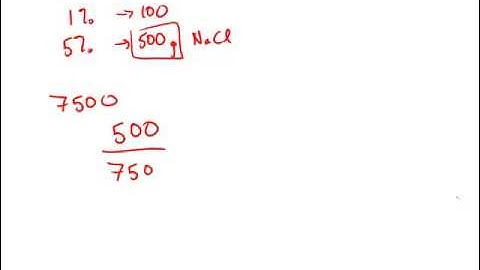 1% → 100
5% → 500g NaCl
7500
500
750